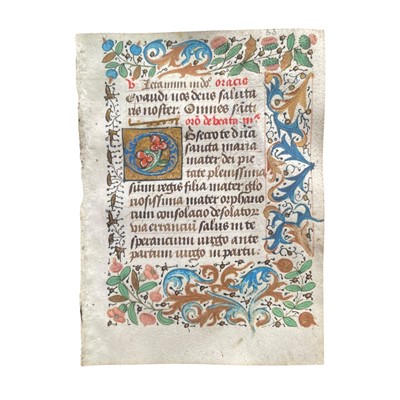 oracio
Exaudi nos deus saluta
ris noster. Omnes sancti
orō de beata m
Obsecro te dña
sancta maria
mater dei pie
tate plenissima
sum regis filia mater glo
riosissima mater orphano
rum consolacio desolator
via errancium salus in te
sperancium virgo ante
partum virgo in partu